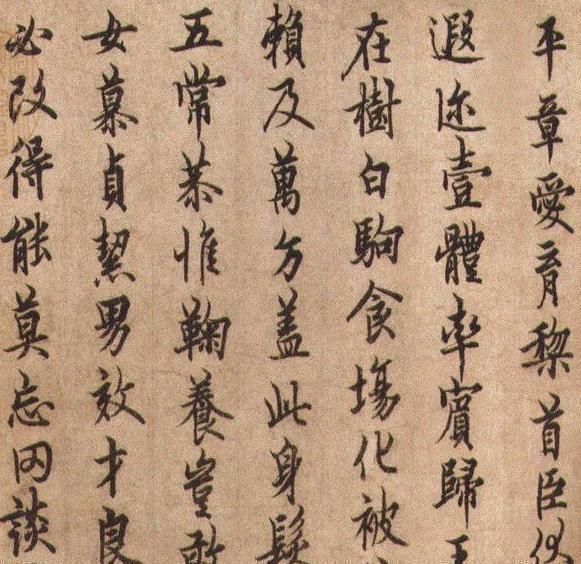 平章愛育黎首臣伏
遐迩壹體率賓歸王
在樹白駒食場化被
賴及萬方蓋此身髮
五常恭惟鞠養豈敢
女慕貞絜男效才良
必改得能莫忘罔談